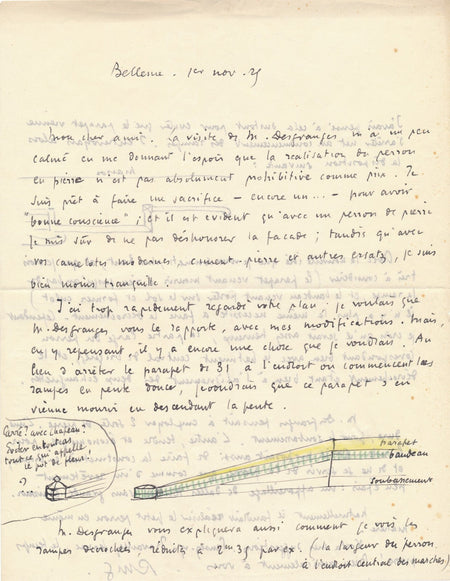 Bellème. 1er nov. 25
Mon cher ami. La visite de M. Desfranges m'a un peu
calmé en me donnant l'espoir que la réalisation du perron
en pierre n'est pas absolument prohibitive comme prix. Je
suis prêt à faire un sacrifice — encore un... — pour avoir
"bonne conscience"; et il est évident qu'avec un perron de pierre
je suis sûr de ne pas déshonorer la façade; tandis qu'avec
vos camelotes modernes, ciment-pierre et autres ersatz, je suis
bien moins tranquille.
J'ai trop rapidement regardé votre plan. Je voulais que
M. Desfranges vous le rapporte, avec mes modifications. Mais,
en y repensant il y a encore une chose que je voudrais. Au
lieu d'arrêter le parapet de 31 à l'endroit où commencent les
rampes en pente douce, je voudrais que ce parapet s'en
vienne mourir en descendant la pente.
Carré! avec chapeau.
tout ce qui rappelle
le pot de fleurs!
parapet
bandeau
soubassement
M. Desfranges vous expliquera aussi comment je vois les
rampes décrochées, réduites à 2m35 par ex. (la largeur du perron
à l'endroit central des marches)